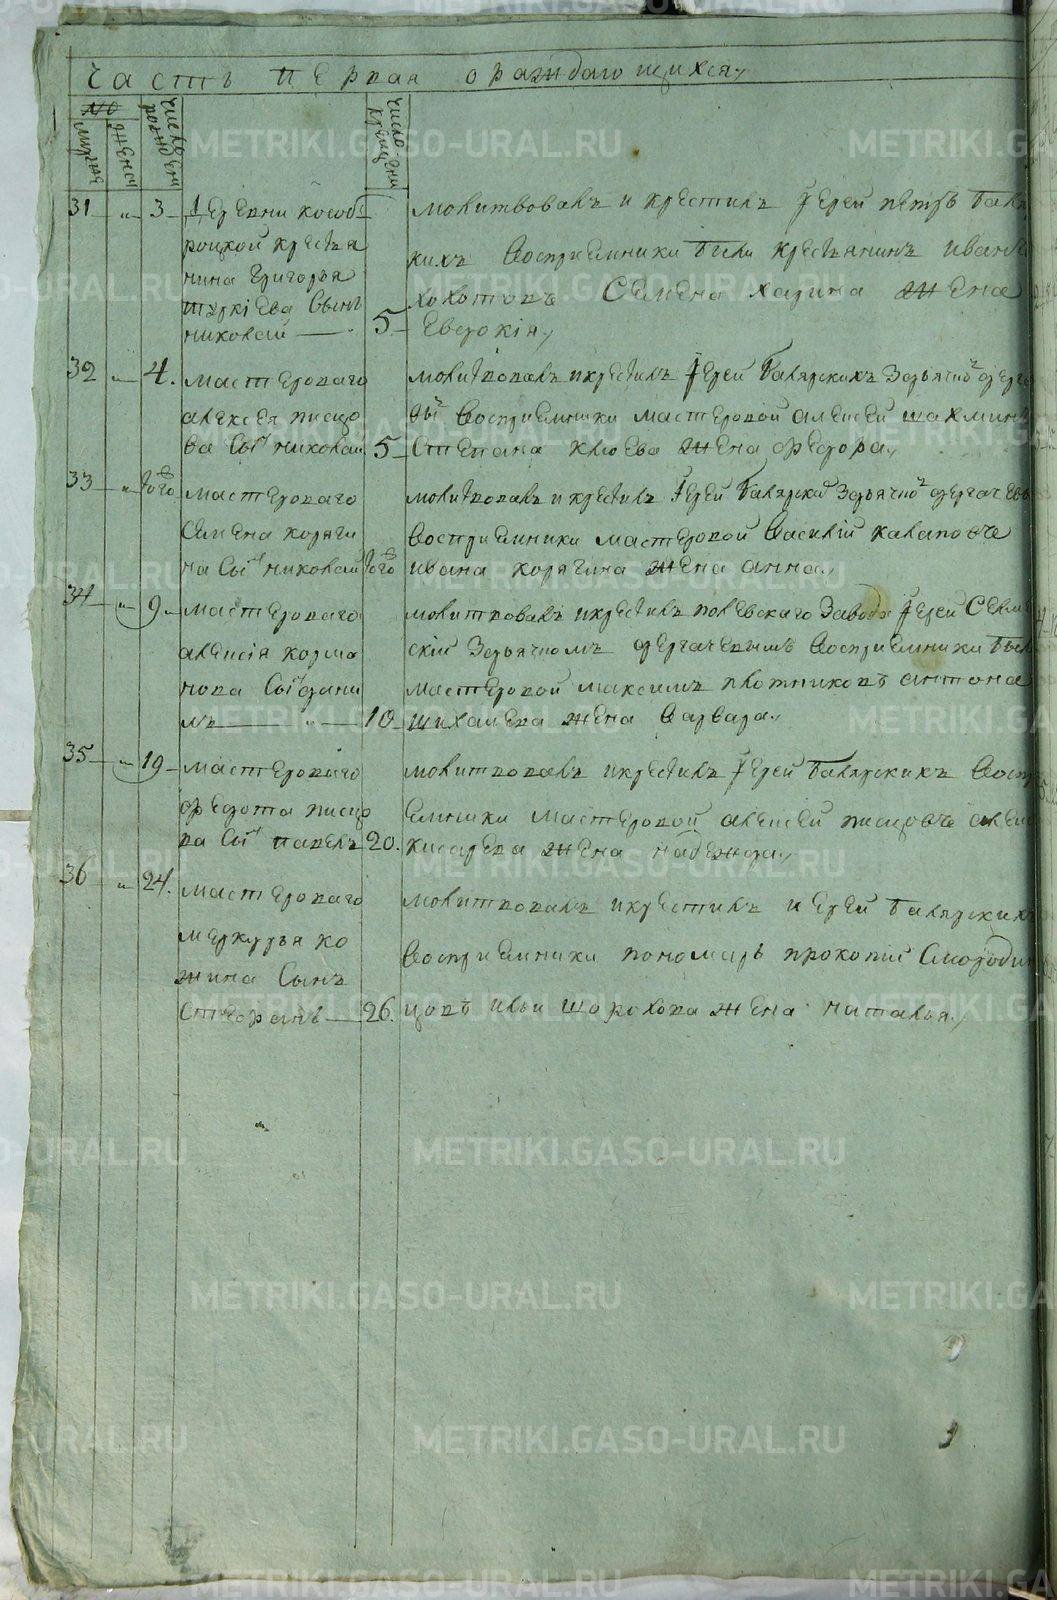 Часть первая о раждающихся,
№
мужеска
женска
число рождени
число крещени
31 " 3 Деревни кособ
роцкой крестья
нина Григорья
Сынъ
николай 5
молитвовалъ и крестилъ Іерей петръ Баля
кихъ Воспріемники Были крестьянинъ иванъ
Семена харина жена
Евдокія,
32 " 4. мастероваго
алексея писцо
ва Сынъ николай 5
молитвовалъ и крестилъ Іерей Балярскихъ Здьячко
Воспріемники мастеровой алексей шахминъ
Степана клюева жена федора,
33 " того мастероваго
Семена коряги
на Сынъ николай того
молитвовалъ и крестилъ Іерей Балярски Здьячко дергачевы
Воспріемники мастеровой Василій
ивана корягина жена анна,
34 " 9 мастероваго
алексія корма
нова Сынъ дани
лъ " 10
молитвовалъ и крестилъ полевскаго Завода Іерей
скій Здьячкомъ дергачевымъ Воспріемники Был
мастеровой максимъ плотниковъ антона
шихалева жена варвара,
35 " 19 мастероваго
федота писцо
ва Сынъ павелъ 20.
молитвовалъ и крестилъ Іерей Балярскихъ Воспр
емники мастеровой алексей писцовъ алек
кисарева жена надежда,
36 " 24. мастероваго
меркурья ко
жина Сынъ
Стефанъ 26.
молитвовалъ и крестилъ иерей Балярскихъ
Воспріемники пономарь прокопій Смородин
цовъ ильи шорохова жена наталья,
METRIKI.GASO-URAL.RU